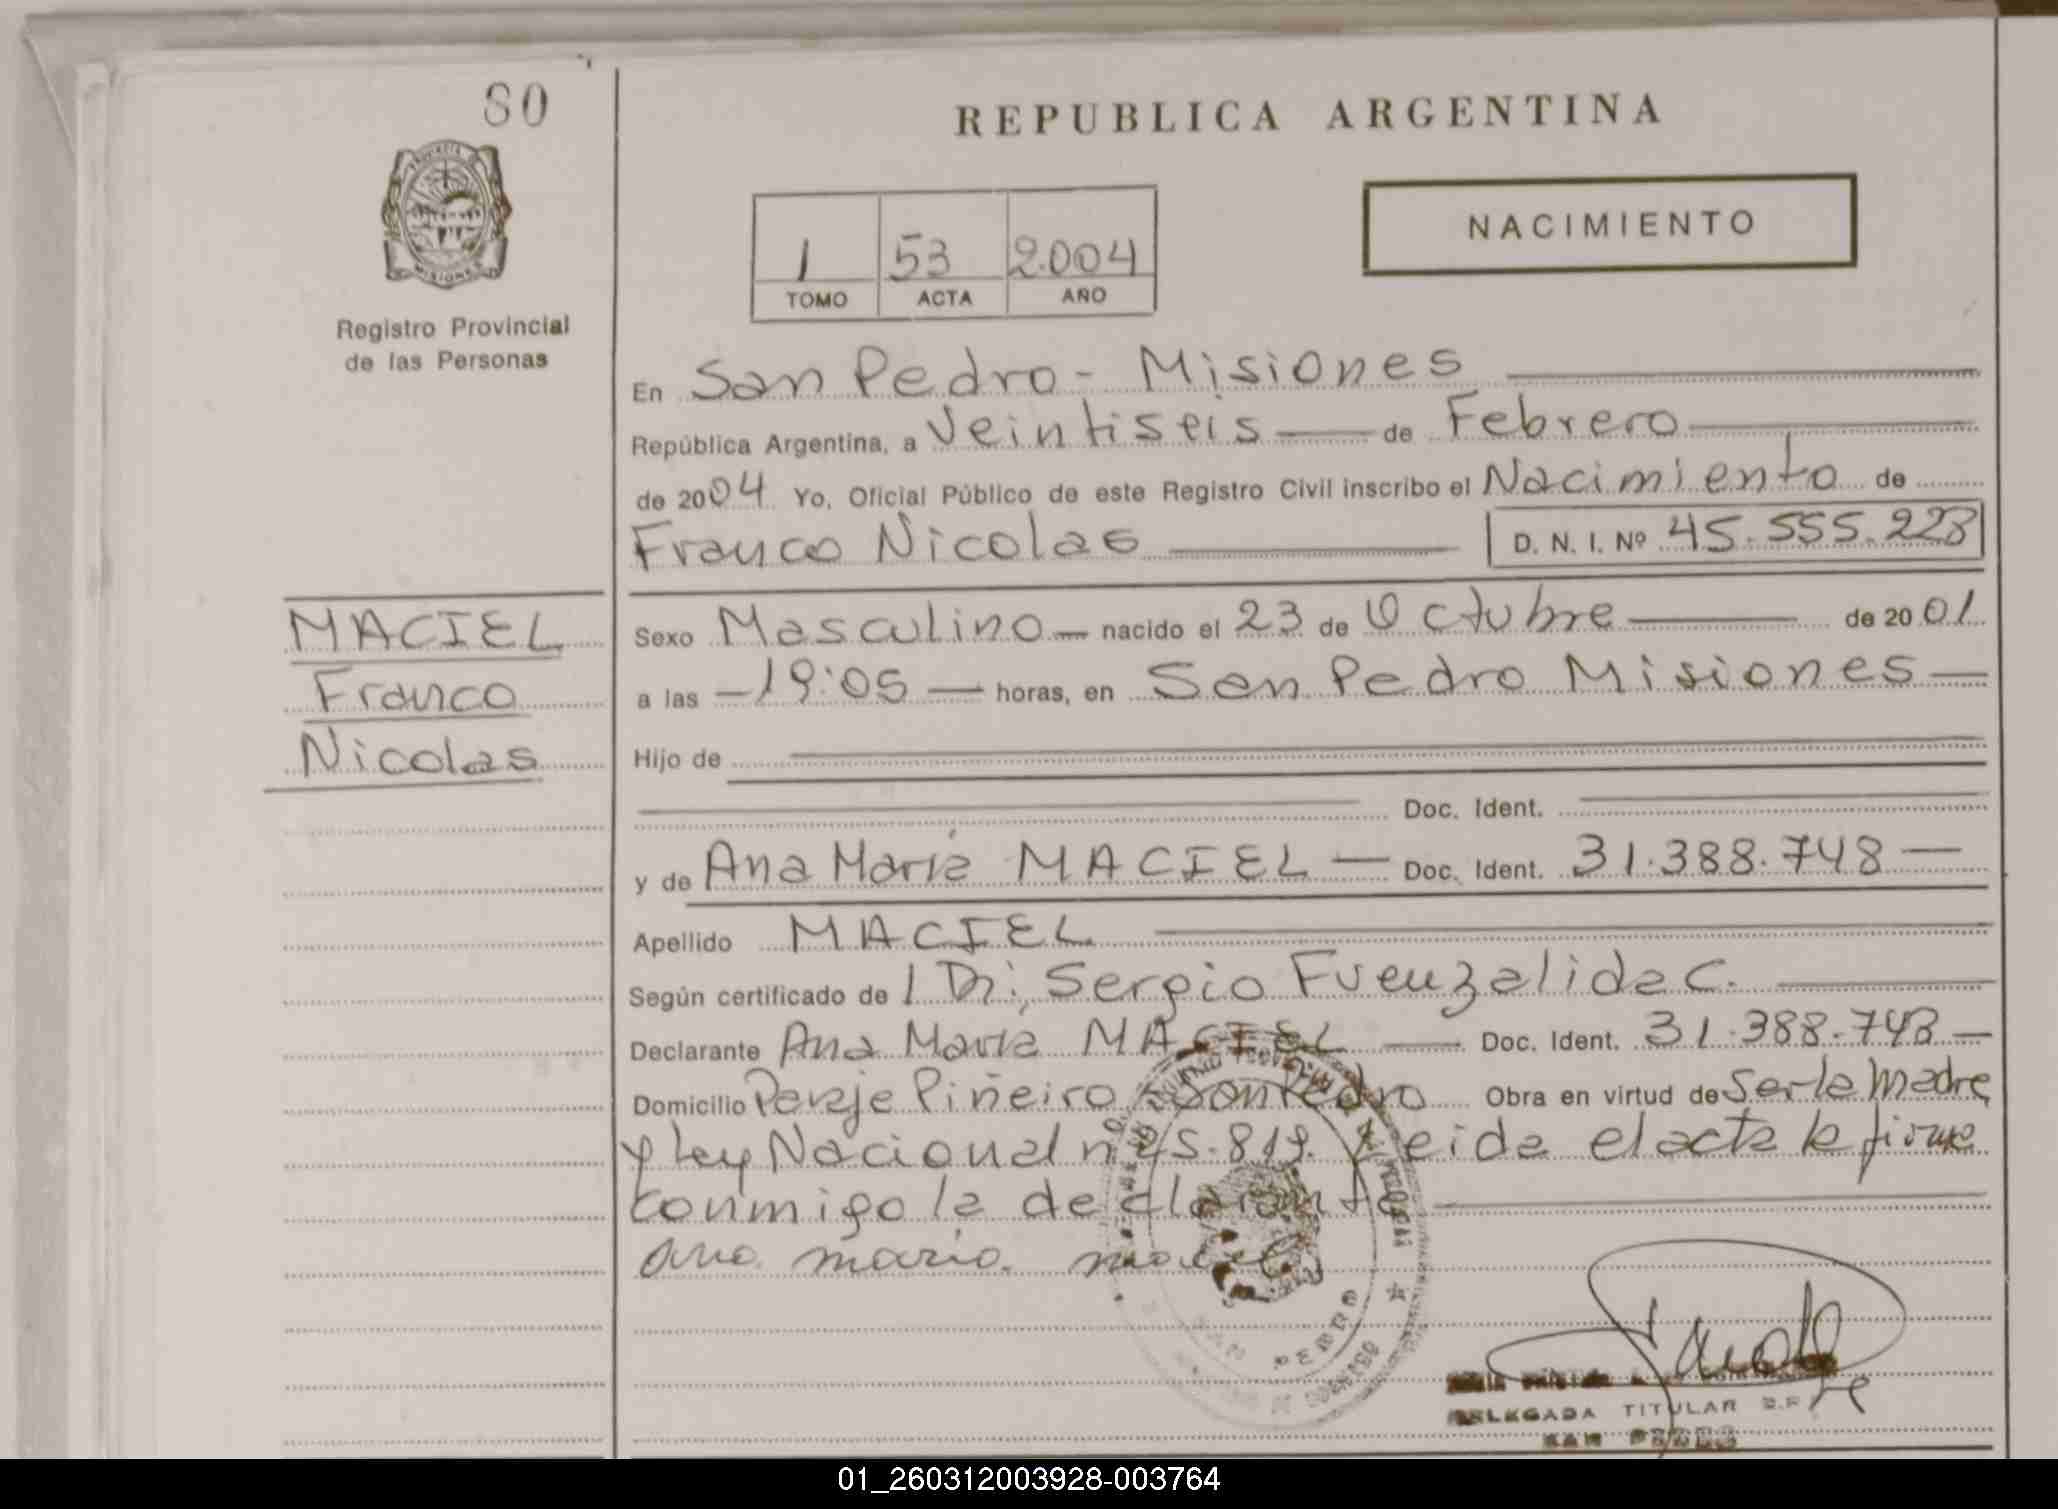 80
REPUBLICA ARGENTINA
NACIMIENTO
1 53 2.004
TOMO ACTA AÑO
MISIONES
Registro Provincial
de las Personas
En San Pedro - Misiones
República Argentina, a Veintiseis de Febrero
de 2004 Yo, Oficial Público de este Registro Civil inscribo el Nacimiento de
Franco Nicolas D. N. I. Nº 45.555.228
MACIEL
Franco
Nicolas
Sexo Masculino nacido el 23 de Octubre de 2001
a las 19:05 horas, en San Pedro Misiones
Hijo de
Doc. Ident.
y de Ana María MACIEL Doc. Ident. 31.388.748
Apellido MACIEL
Según certificado de Sergio Fuenzalida C.
Declarante Ana María MACIEL Doc. Ident. 31.388.748
Domicilio Paraje Piñeiro - San Pedro Obra en virtud de Ser la Madre
y Ley Nacional nº 25.819. Leida el acta la firma
conmigo la declarante
ana maria maciel
DELEGADA TITULAR
SAN PEDRO
01_260312003928-003764